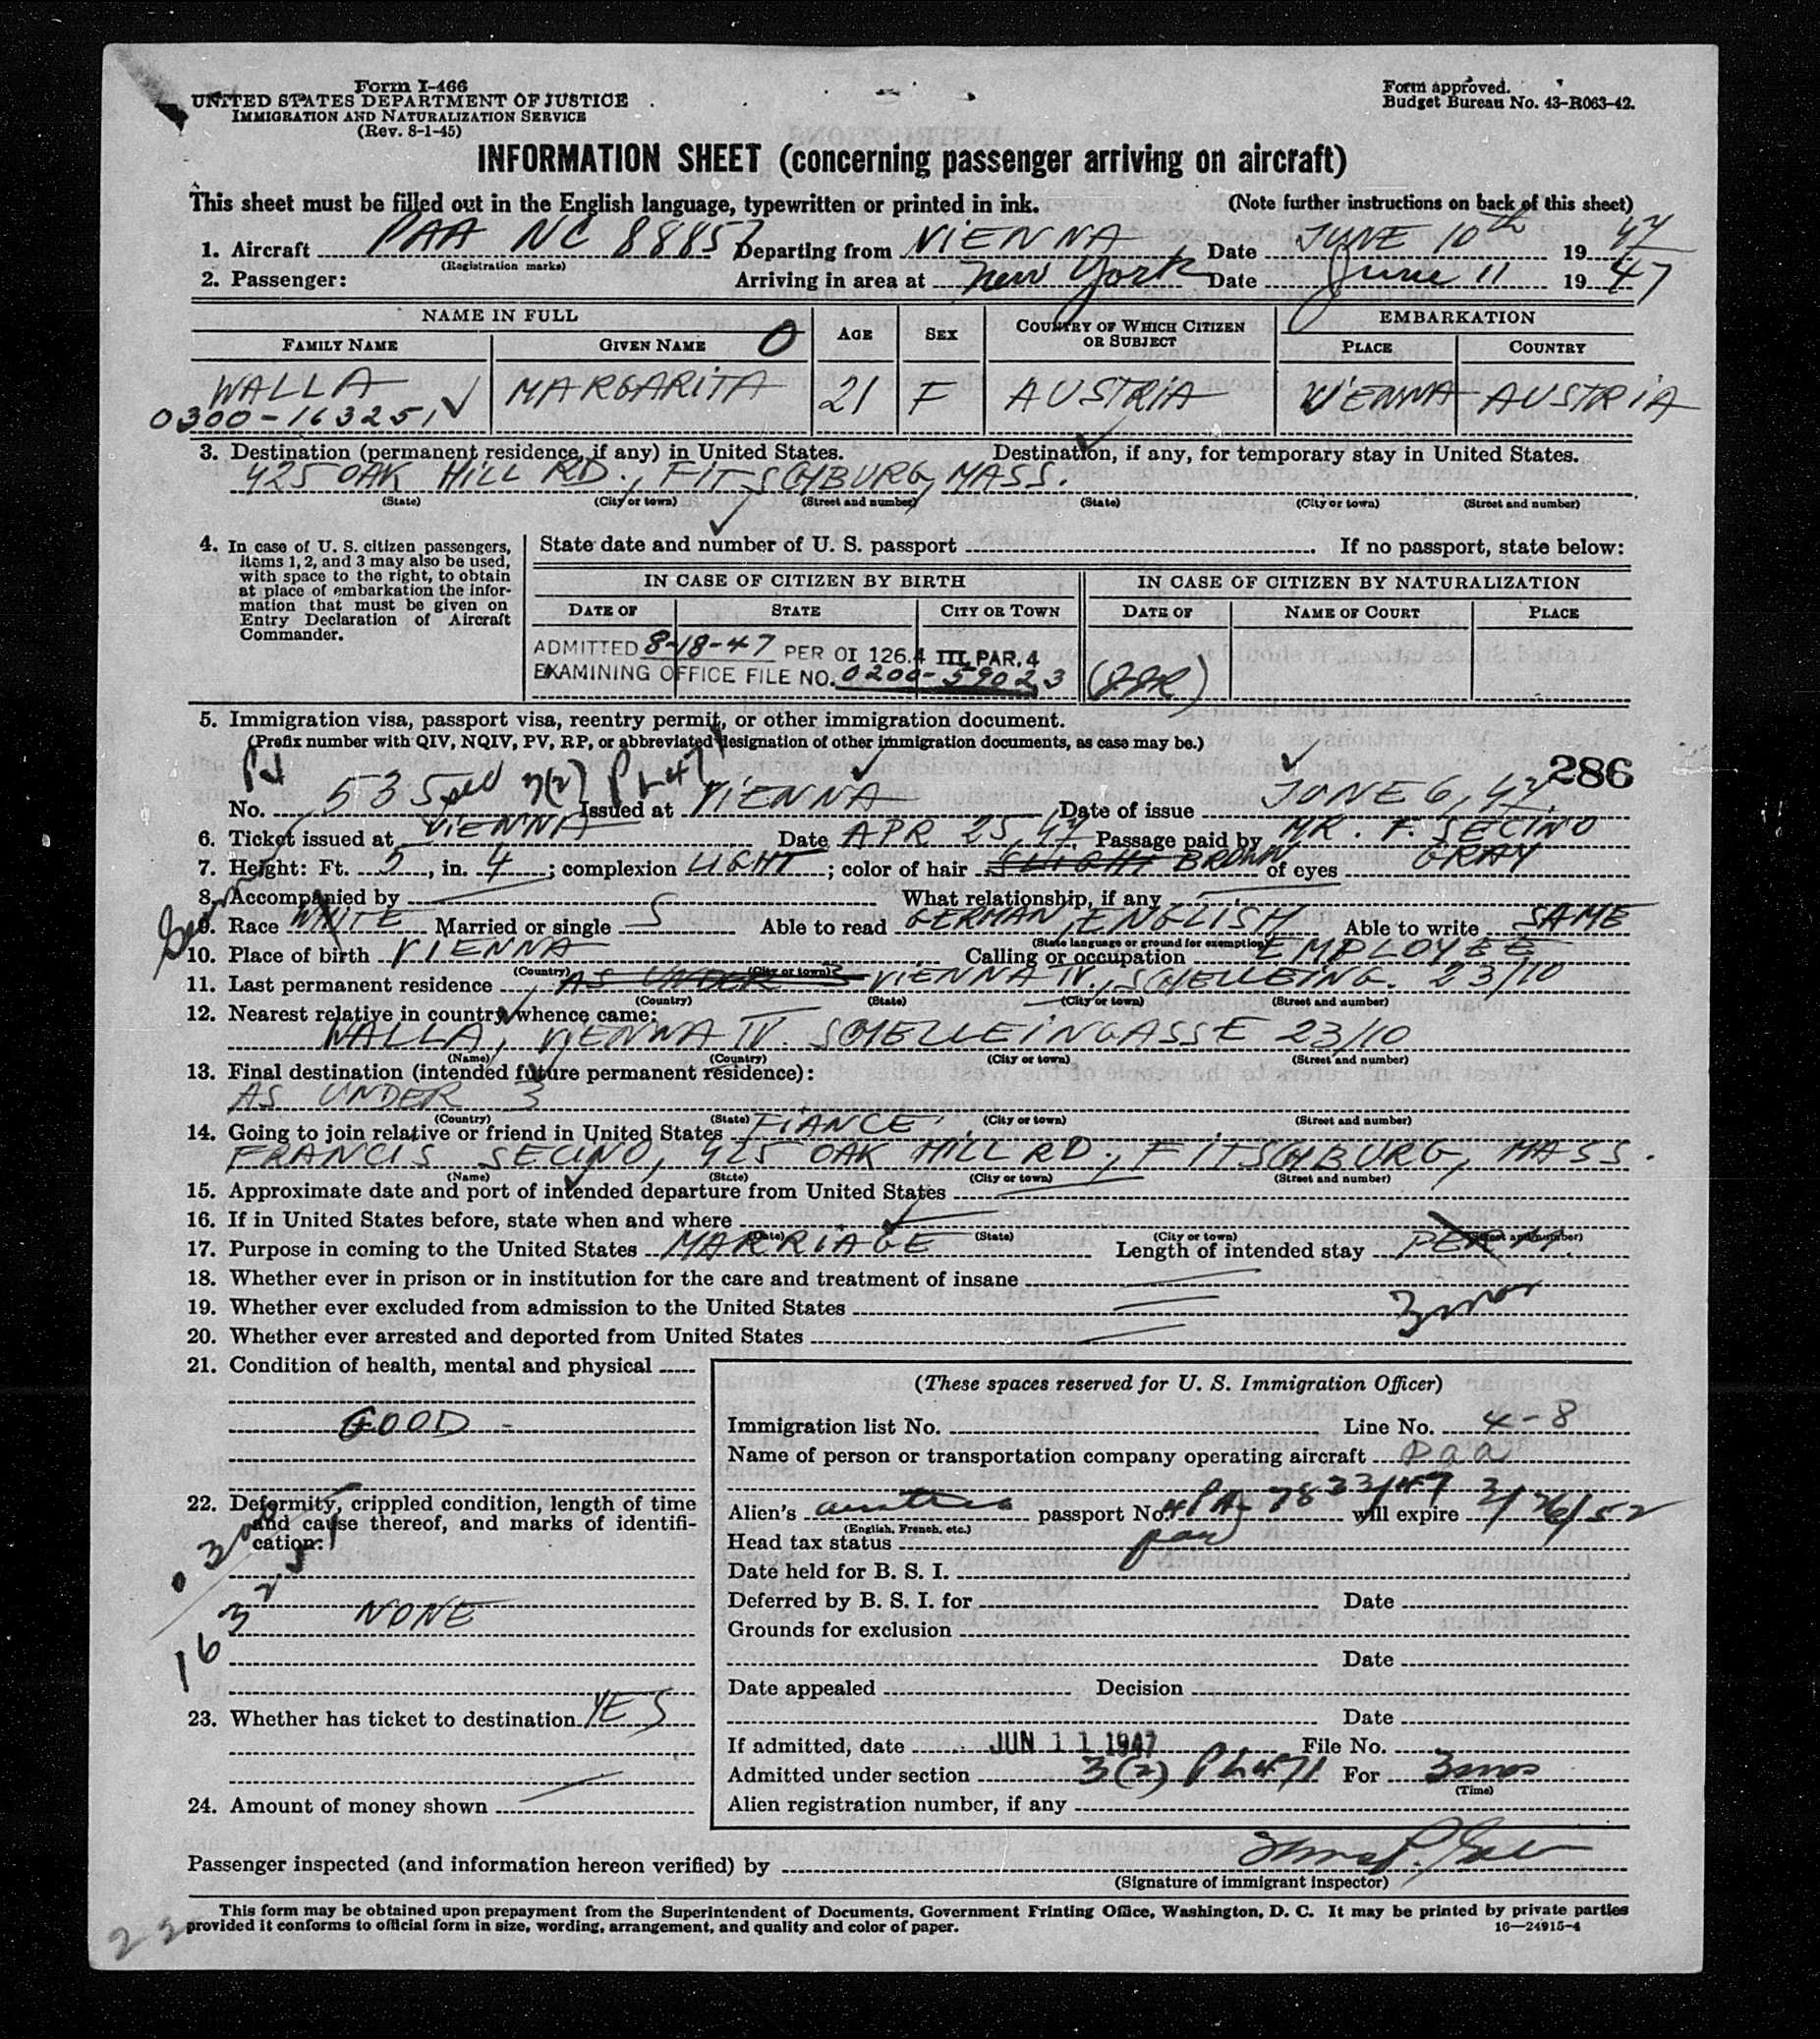 Form I-466
UNITED STATES DEPARTMENT OF JUSTICE
IMMIGRATION AND NATURALIZATION SERVICE
(Rev. 8-1-45)
Form approved.
Budget Bureau No. 43-R063-42.
INFORMATION SHEET (concerning passenger arriving on aircraft)
This sheet must be filled out in the English language, typewritten or printed in ink. (Note further instructions on back of this sheet)
1. Aircraft PAA NC 88857 Departing from VIENNA Date JUNE 10th 1947
(Registration marks)
2. Passenger: Arriving in area at New York Date June 11 1947
NAME IN FULL EMBARKATION
FAMILY NAME GIVEN NAME O AGE SEX COUNTRY OF WHICH CITIZEN OR SUBJECT PLACE COUNTRY
WALLA MARGARITA 21 F AUSTRIA VIENNA AUSTRIA
0300-163251
3. Destination (permanent residence, if any) in United States. Destination, if any, for temporary stay in United States.
425 OAK HILL RD., FITSCHBURG, MASS.
(State) (City or town) (Street and number) (State) (City or town) (Street and number)
4. In case of U. S. citizen passengers, items 1, 2, and 3 may also be used, with space to the right, to obtain at place of embarkation the information that must be given on Entry Declaration of Aircraft Commander.
State date and number of U. S. passport If no passport, state below:
IN CASE OF CITIZEN BY BIRTH IN CASE OF CITIZEN BY NATURALIZATION
DATE OF STATE CITY OR TOWN DATE OF NAME OF COURT PLACE
ADMITTED 8-18-47 PER OI 126.4 III PAR. 4
EXAMINING OFFICE FILE NO. 0200-59023
5. Immigration visa, passport visa, reentry permit, or other immigration document.
(Prefix number with QIV, NQIV, PV, RP, or abbreviated designation of other immigration documents, as case may be.)
286
3(2) PL 471
No. 535 Issued at VIENNA Date of issue JUNE 6, 47
6. Ticket issued at VIENNA Date APR 25, 47 Passage paid by MR. F. SECINO
7. Height: Ft. 5, in. 4; complexion LIGHT; color of hair BROWN of eyes GRAY
8. Accompanied by What relationship, if any
9. Race WHITE Married or single S Able to read GERMAN, ENGLISH Able to write SAME
(State language or ground for exemption)
10. Place of birth VIENNA Calling or occupation EMPLOYEE
(Country) (City or town)
11. Last permanent residence AS UNDER 3 VIENNA IV., SCHELLEING. 23/10
(Country) (State) (City or town) (Street and number)
12. Nearest relative in country whence came:
WALLA, VIENNA IV. SCHELLEINGASSE 23/10
(Name) (Country) (City or town) (Street and number)
13. Final destination (intended future permanent residence):
AS UNDER 3
(Country) (State) (City or town) (Street and number)
14. Going to join relative or friend in United States FIANCE
FRANCIS SECINO, 425 OAK HILL RD., FITSCHBURG, MASS.
(Name) (State) (City or town) (Street and number)
15. Approximate date and port of intended departure from United States
16. If in United States before, state when and where
(Date) (State) (City or town) (Street and number)
17. Purpose in coming to the United States MARRIAGE Length of intended stay PERM.
18. Whether ever in prison or in institution for the care and treatment of insane
19. Whether ever excluded from admission to the United States 3 mos
20. Whether ever arrested and deported from United States
21. Condition of health, mental and physical
GOOD
22. Deformity, crippled condition, length of time and cause thereof, and marks of identification:
0300
163251
NONE
23. Whether has ticket to destination YES
24. Amount of money shown
(These spaces reserved for U. S. Immigration Officer)
Immigration list No. Line No. 4-8
Name of person or transportation company operating aircraft paa
Alien's austria passport No. 7833/47 will expire 3/26/52
(English, French, etc.)
Head tax status
Date held for B. S. I.
Deferred by B. S. I. for Date
Grounds for exclusion
Date
Date appealed Decision
Date
If admitted, date JUN 11 1947 File No.
Admitted under section 3(2) PL 471 For 3 mos
(Time)
Alien registration number, if any
Passenger inspected (and information hereon verified) by
(Signature of immigrant inspector)
This form may be obtained upon prepayment from the Superintendent of Documents, Government Printing Office, Washington, D. C. It may be printed by private parties
provided it conforms to official form in size, wording, arrangement, and quality and color of paper.
16—24915-4